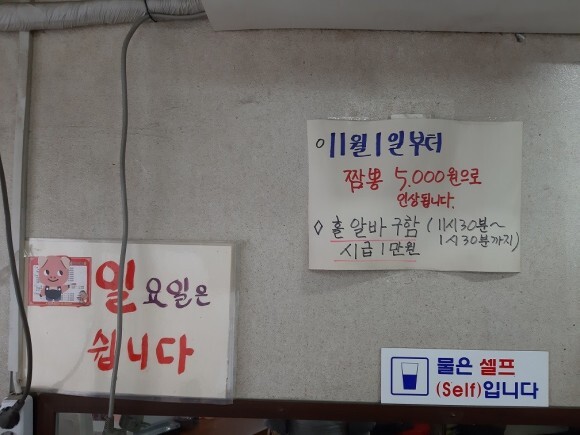 ○ 11월 1일부터
짬뽕 5.000원으로
인상됩니다.
◇ 홀 알바 구함 (11시30분~
1시30분까지)
시급 1만원
일요일은
쉽니다
물은 셀프
(Self)입니다